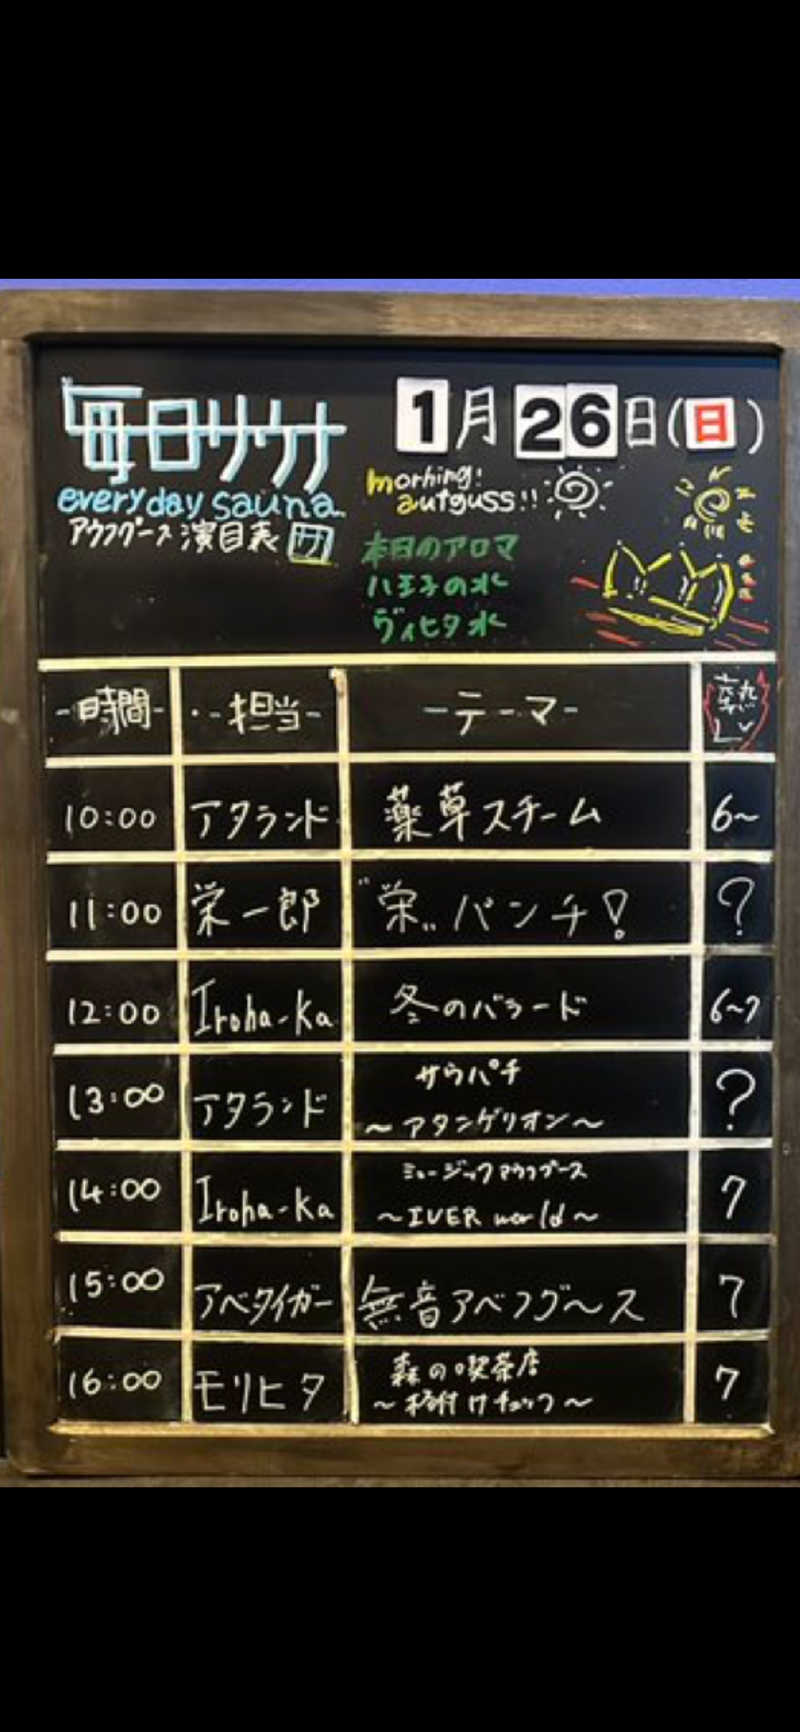 毎日サウナ
everyday sauna
アウフグース演目表 サ
1月26日(日)
morning!
aufguss!!
本日のアロマ
八王子の水
ヴィヒタ水
-時間- -担当- -テーマ- 熱Lv
10:00 アタランド 薬草スチーム 6〜
11:00 栄一郎 "栄"パンチ! ?
12:00 Iroha-ka 冬のバラード 6〜7
13:00 アタランド サウパチ ?
〜アタンゲリオン〜
14:00 Iroha-ka ミュージックアウフグース 7
〜IVER world〜
15:00 アベタイガー 無音アベフグ〜ス 7
16:00 モリヒタ 森の喫茶店 7
〜格付けチェック〜